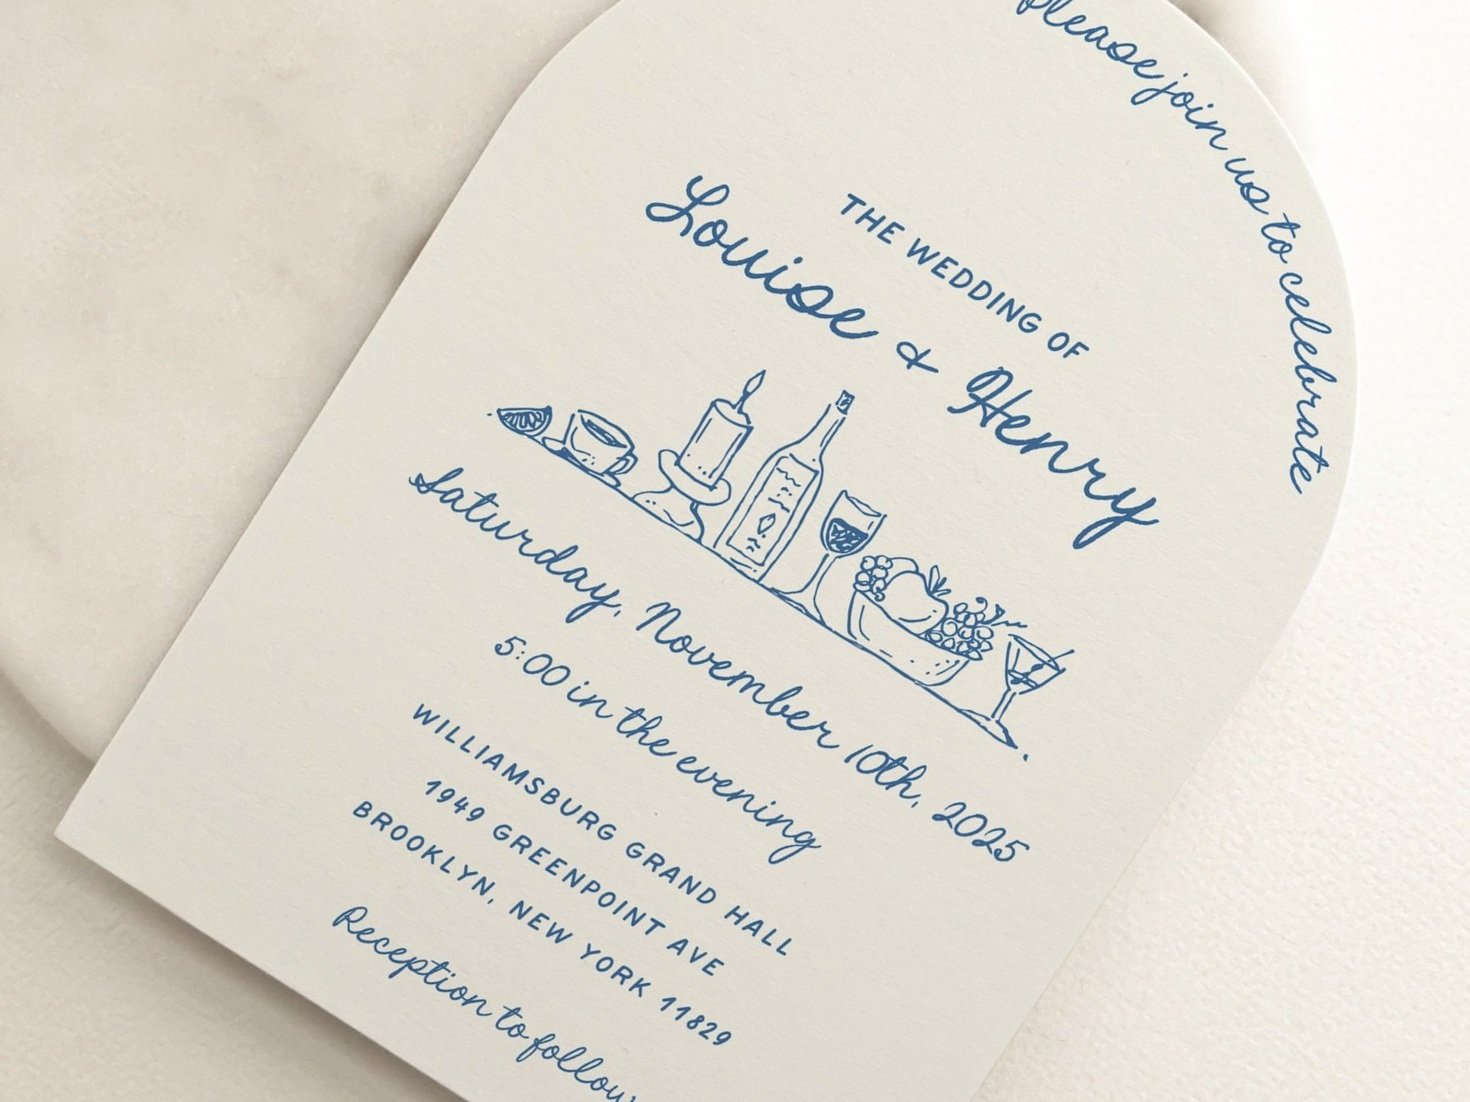 please join us to celebrate
THE WEDDING OF
Louise & Henry
Saturday, November 10th, 2025
5:00 in the evening
WILLIAMSBURG GRAND HALL
1949 GREENPOINT AVE
BROOKLYN, NEW YORK 11829
Reception to follow